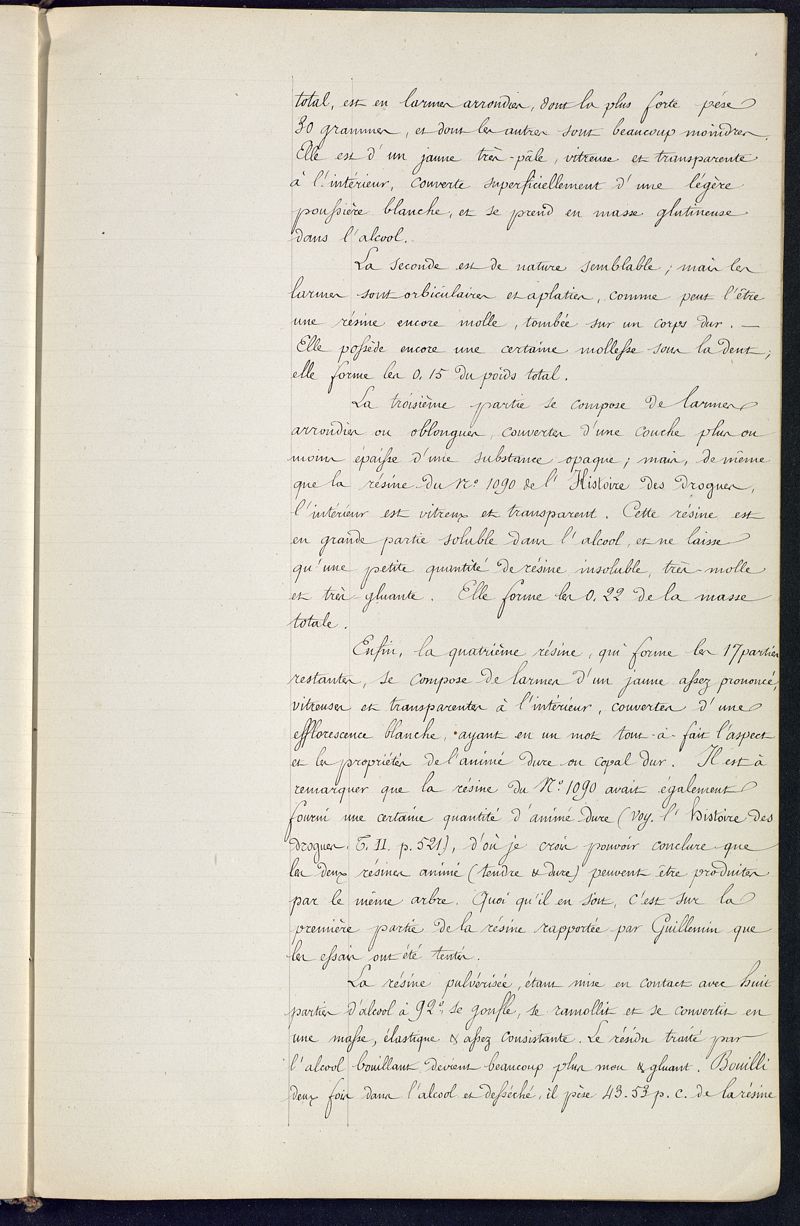 total, est en larmes arrondies, dont la plus forte pèse
30 grammes, et dont les autres sont beaucoup moindres.
Elle est d'un jaune très-pâle, vitreuse et transparente
à l'intérieur, couverte superficiellement d'une légère
poussière blanche, et se prend en masse glutineuse
dans l'alcool.
La seconde est de nature semblable; mais les
larmes sont orbiculaires et aplaties, comme peut l'être
une résine encore molle, tombée sur un corps dur. —
Elle possède encore une certaine mollesse sous la dent;
elle forme les 0.15 du poids total.
La troisième partie se compose de larmes
arrondies ou oblongues, couvertes d'une couche plus ou
moins épaisse d'une substance opaque; mais, de même
que la résine du N° 1090 de l'Histoire des Drogues,
l'intérieur est vitreux et transparent. Cette résine est
en grande partie soluble dans l'alcool, et ne laisse
qu'une petite quantité de résine insoluble, très-molle
et très-gluante. Elle forme les 0.22 de la masse
totale.
Enfin, la quatrième résine, qui forme les 17 parties
restantes, se compose de larmes d'un jaune assez prononcé,
vitreuses et transparentes à l'intérieur, couvertes d'une
efflorescence blanche, ayant en un mot tout-à-fait l'aspect
et les propriétés de l'animé dure ou copal dur. Il est à
remarquer que la résine du N° 1090 avait également
fourni une certaine quantité d'animé dure (voy. l'histoire des
drogues. T. II. p. 521), d'où je crois pouvoir conclure que
les deux résines animé (tendre & dure) peuvent être produites
par le même arbre. Quoi qu'il en soit, c'est sur la
première partie de la résine rapportée par Guillemin que
les essais ont été tentés.
La résine pulvérisée, étant mise en contact avec huit
parties d'alcool à 92°, se gonfle, se ramollit et se convertit en
une masse, élastique & assez consistante. Le résidu traité par
l'alcool bouillant devient beaucoup plus mou & gluant. Bouilli
deux fois dans l'alcool et desséché, il pèse 43.53 p. c. de la résine